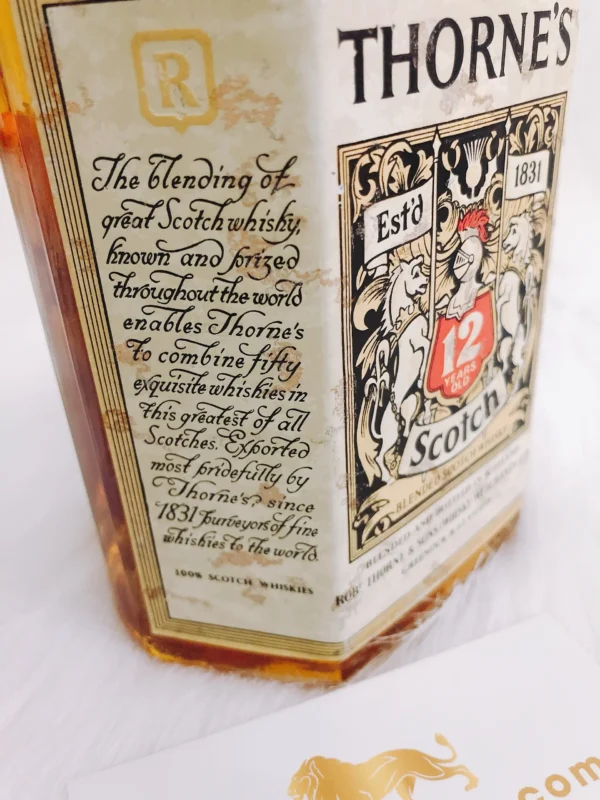 R
The blending of
great Scotch whisky,
known and prized
throughout the world
enables Thorne's
to combine fifty
exquisite whiskies in
this greatest of all
Scotches. Exported
most pridefully by
Thorne's? since
1831 purveyors of fine
whiskies to the world.
100% SCOTCH WHISKIES
THORNE'S
Est'd
1831
12
YEARS
OLD
Scotch
BLENDED SCOTCH WHISKY
BLENDED AND BOTTLED
ROBT THORNE & SONS
com